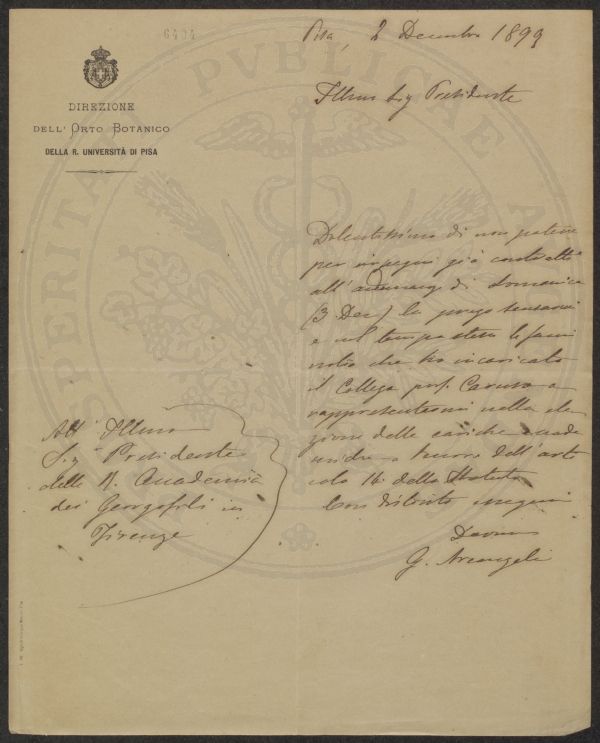 6404
Pisa, 2 Decembre 1899
DIREZIONE
DELL' ORTO BOTANICO
DELLA R. UNIVERSITÀ DI PISA
Illmo Sig Presidente
Dolentissimo di non potere
per impegni già contratti
all' adunanza di Domenica
(3 Dec) la prego scusarmi
e nel tempo stesso le facci
noto che ho incaricato
il Collega prof. Caruso a
rappresentarmi nella ele
zione delle cariche accade
miche a norma dell' arti
colo 16 dello Statuto
Con distinto
Devmo
G. Arcangeli
All' Illmo
Sig Presidente
della R. Accademia
dei Georgofili in
Firenze
PROSPERITATI PVBLICAE AVGENDAE